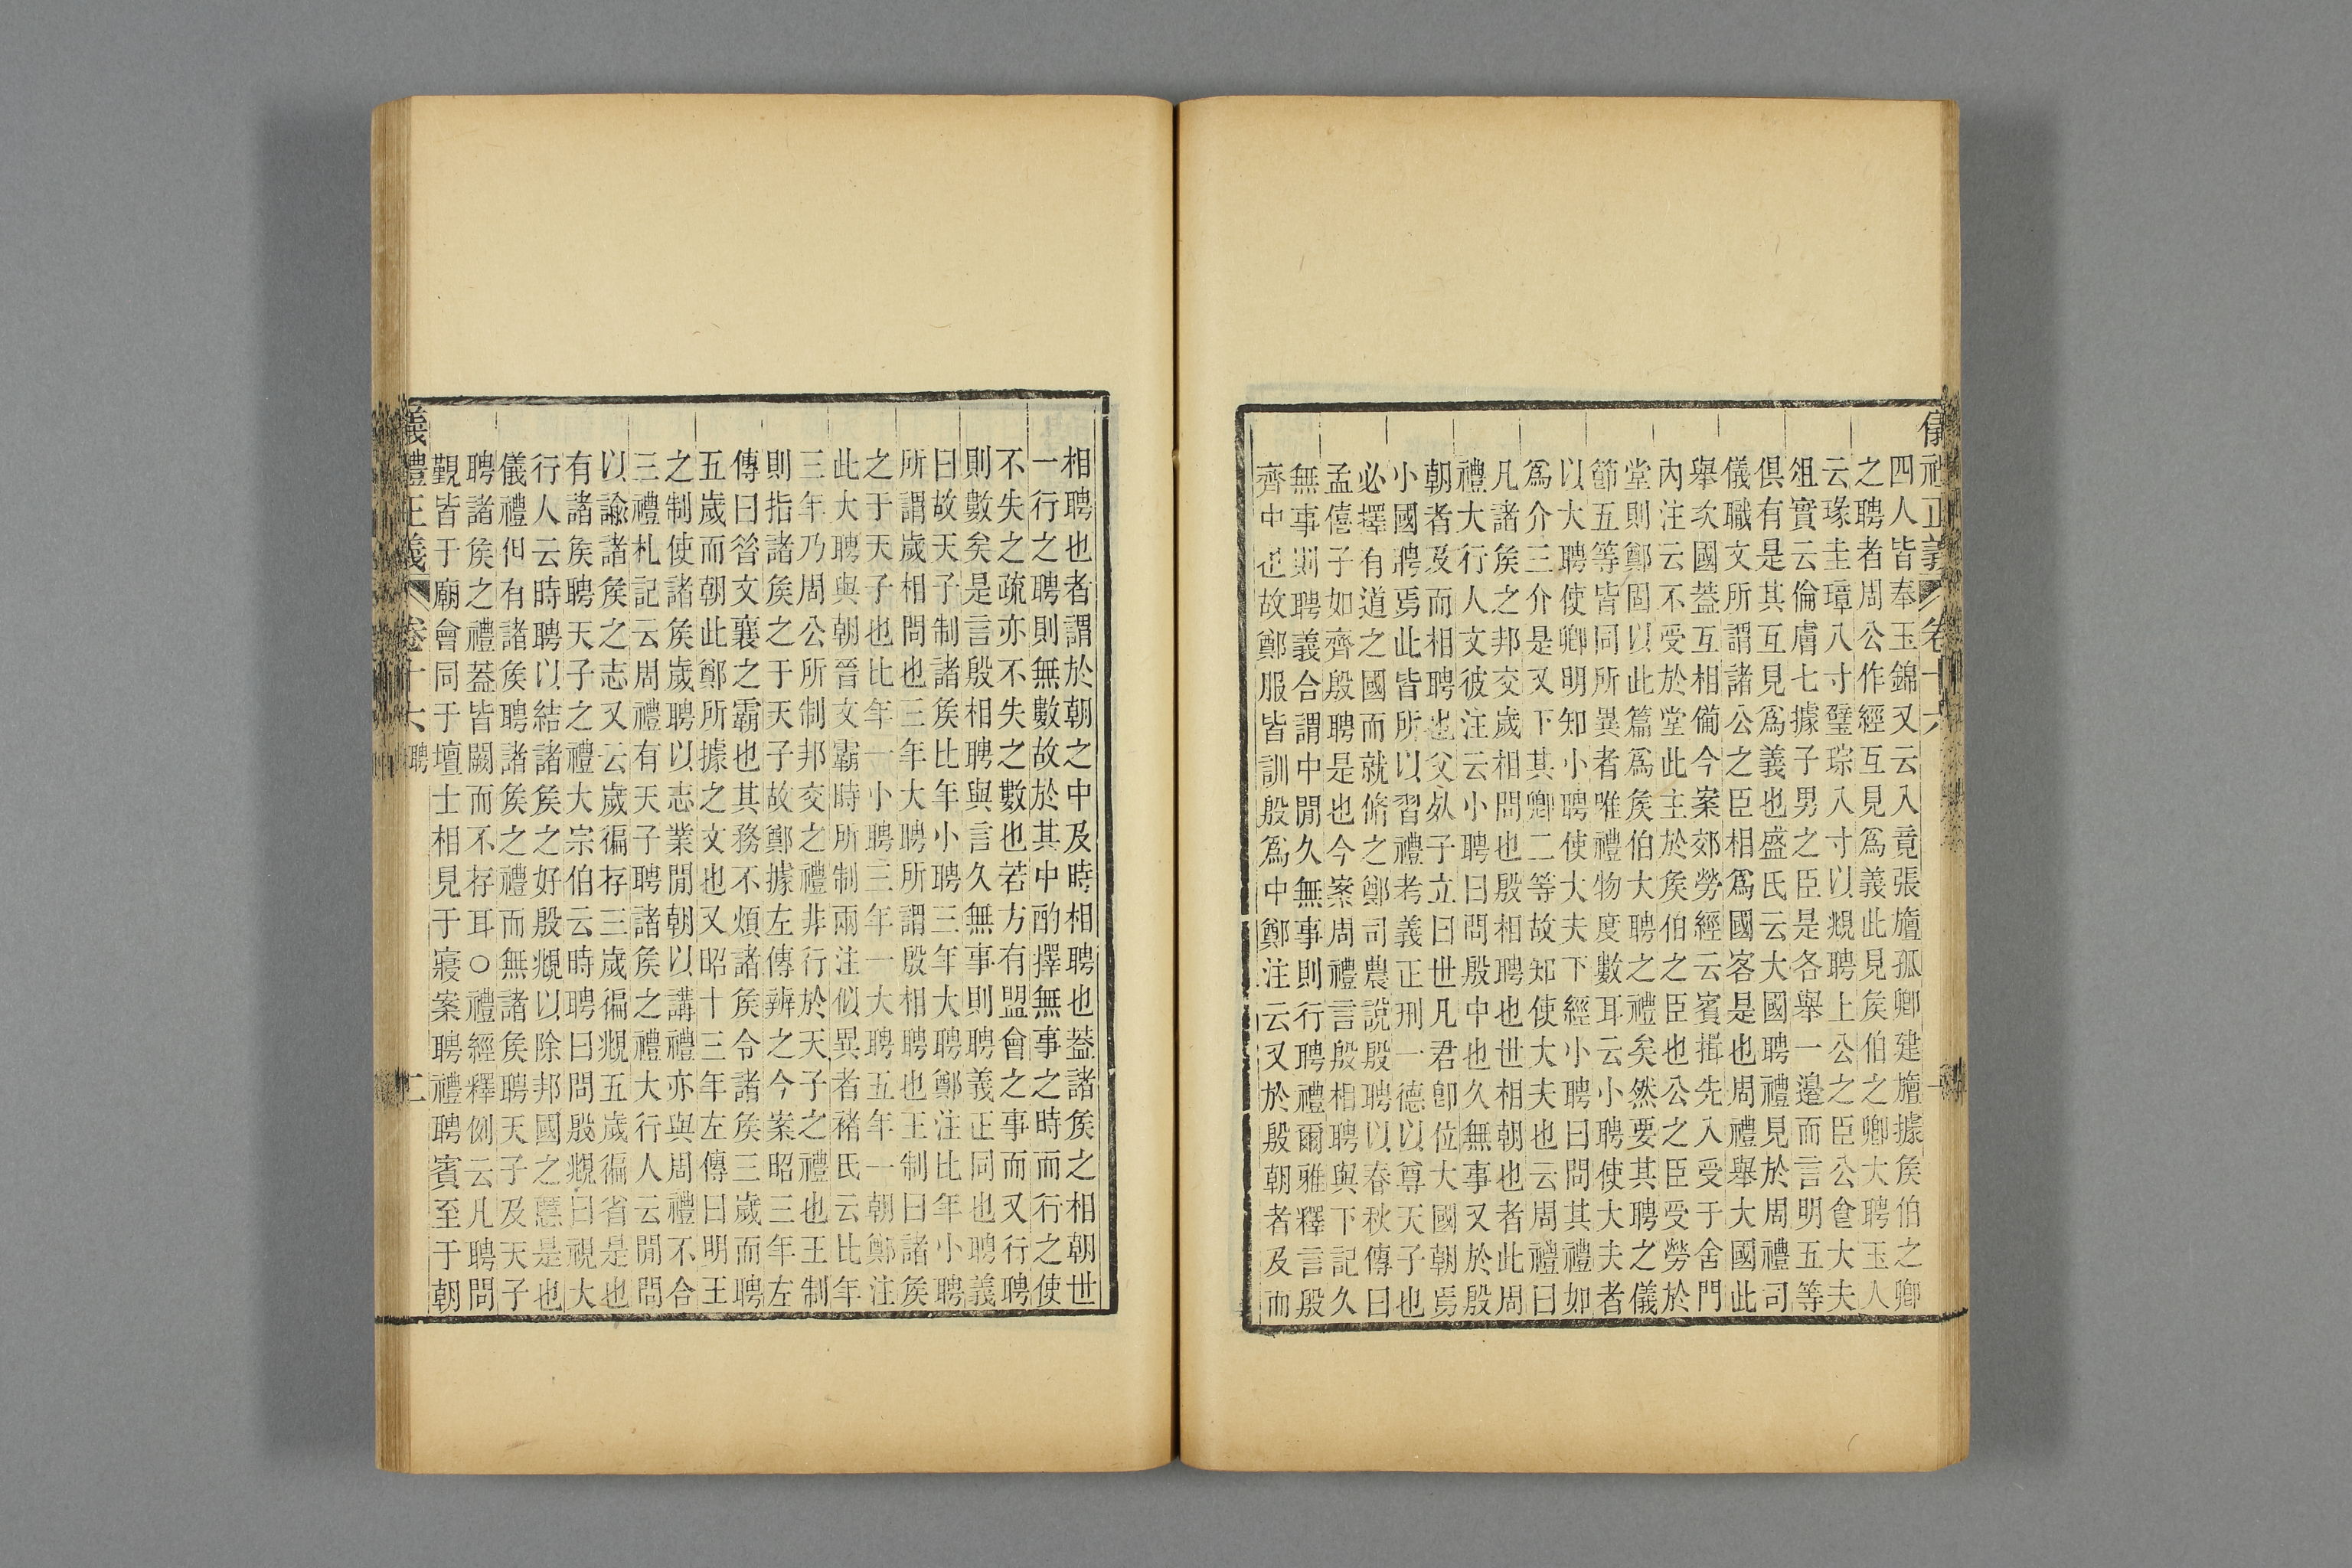 儀禮正義 卷十六 一
四人皆奉玉錦又云入竟張旜孤卿建旜據矦伯之卿
之聘者周公作經互見爲義此見矦伯之卿大聘玉人
云瑑圭璋八寸璧琮八寸以覜聘上公之臣公食大夫
俎實云倫膚七據子男之臣是各舉一邉而言明五等
俱有是其互見爲義也盛氏云大國聘禮見於周禮司
儀職文所謂諸公之臣相爲國客是也周禮舉大國此
舉次國葢互相備今案郊勞經云賓揖先入受于舍門
內注云不受於堂此主於矦伯之臣也公之臣受勞於
堂則鄭固以此篇爲矦伯大聘之禮矣然要其聘之儀
節五等皆同所異者唯禮物度數耳云小聘使大夫者
以大聘使卿明知小聘使大夫下經小聘曰問其禮如
爲介三介是又下其卿二等故知使大夫也云周禮曰
凡諸矦之邦交歲相問也殷相聘也世相朝也者此周
禮大行人文彼注云小聘曰問殷中也久無事又於殷
朝者及而相聘也父死子立曰世凡君卽位大國朝焉
小國聘焉此皆所以習禮考義正刑一德以尊天子也
必擇有道之國而就脩之鄭司農說殷聘以春秋傳曰
孟僖子如齊殷聘是也今案周禮言殷相聘與下記久
無事則聘義合謂中閒久無事則行聘禮爾雅釋言殷
齊中也故鄭服皆訓殷爲中鄭注云又於殷朝者及而
相聘也者謂於朝之中及時相聘也葢諸矦之相朝世
一行之聘則無數故於其中酌擇無事之時而行之使
不失之疏亦不失之數也若方有盟會之事而又行聘
則數矣是言殷相聘與言久無事則聘義正同也聘義
曰故天子制諸矦比年小聘三年大聘鄭注比年小聘
所謂歲相問也三年大聘所謂殷相聘也王制曰諸矦
之于天子也比年一小聘三年一大聘五年一朝鄭注
此大聘與朝晉文霸時所制兩注似異者褚氏云比年
三年乃周公所制邦交之禮非行於天子之禮也王制
則指諸矦之于天子故鄭據左傳辨之今案昭三年左
傳曰昝文襄之霸也其務不煩諸矦令諸矦三歲而聘
五歲而朝此鄭所據之文也又昭十三年左傳曰明王
之制使諸矦歲聘以志業閒朝以講禮亦與周禮不合
三禮札記云周禮有天子聘諸矦之禮大行人云閒問
以諭諸矦之志又云歲徧存三歲徧覜五歲徧省是也
有諸矦聘天子之禮大宗伯云時聘曰問殷覜曰視大
行人云時聘以結諸矦之好殷覜以除邦國之慝是也
儀禮但有諸矦聘諸矦之禮而無諸矦聘天子及天子
聘諸矦之禮葢皆闕而不存耳○禮經釋例云凡聘問
覲皆于廟會同于壇士相見于寢案聘禮聘賓至于朝
儀禮正義 卷十六 聘 二